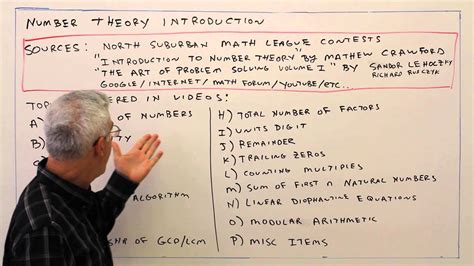 NUMBER THEORY INTRODUCTION
SOURCES: NORTH SUBURBAN MATH LEAGUE CONTESTS
"INTRODUCTION TO NUMBER THEORY" BY MATHEW CRAWFORD
"THE ART OF PROBLEM SOLVING VOLUME I" BY SANDOR LEHOCZKY
RICHARD RUSCZYK
GOOGLE/INTERNET/MATH FORUM/YOUTUBE/ETC...
IN VIDEOS:
A)
OF NUMBERS
B)
ALGORITHM
OF GCD/LCM
H) TOTAL NUMBER OF FACTORS
I) UNITS DIGIT
J) REMAINDER
K) TRAILING ZEROS
L) COUNTING MULTIPLES
M) SUM OF FIRST n NATURAL NUMBERS
N) LINEAR DIOPHANTINE EQUATIONS
O) MODULAR ARITHMETIC
P) MISC ITEMS